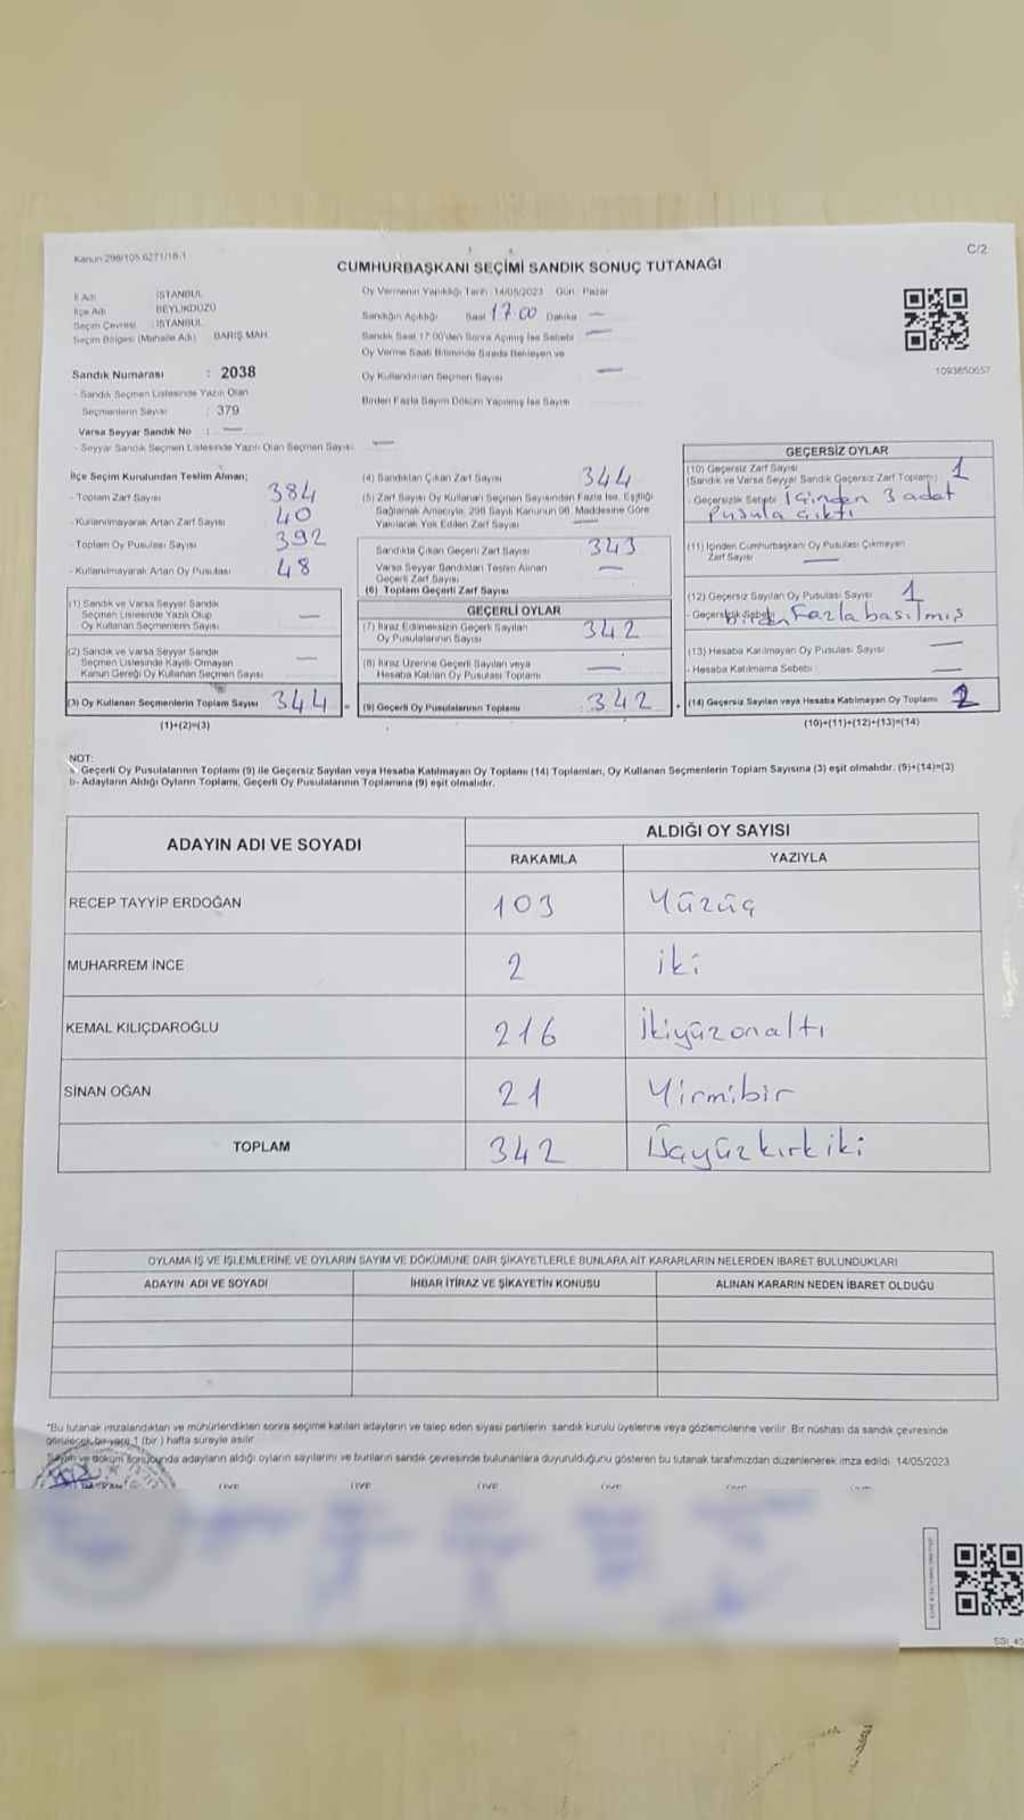 Kanun 298/105 6271/18-1
C/2
CUMHURBAŞKANI SEÇİMİ SANDIK SONUÇ TUTANAĞI
İl Adı : İSTANBUL
İlçe Adı : BEYLİKDÜZÜ
Seçim Çevresi : İSTANBUL
Seçim Bölgesi (Mahalle Adı) : BARIŞ MAH.
Sandık Numarası : 2038
- Sandık Seçmen Listesinde Yazılı Olan
Seçmenlerin Sayısı : 379
Varsa Seyyar Sandık No : —
- Seyyar Sandık Seçmen Listesinde Yazılı Olan Seçmen Sayısı : —
Oy Vermenin Yapıldığı Tarih : 14/05/2023 Gün : Pazar
Sandığın Açıldığı Saat 17 00 Dakika —
Sandık Saat 17:00'den Sonra Açılmış İse Sebebi —
Oy Verme Saati Bitiminde Sırada Bekleyen ve
Oy Kullandırılan Seçmen Sayısı —
Birden Fazla Sayım Döküm Yapılmış İse Sayısı
1093850657
İlçe Seçim Kurulundan Teslim Alınan;
- Toplam Zarf Sayısı 384
- Kullanılmayarak Artan Zarf Sayısı 40
- Toplam Oy Pusulası Sayısı 392
- Kullanılmayarak Artan Oy Pusulası 48
(1) Sandık ve Varsa Seyyar Sandık
Seçmen Listesinde Yazılı Olup
Oy Kullanan Seçmenlerin Sayısı —
(2) Sandık ve Varsa Seyyar Sandık
Seçmen Listesinde Kayıtlı Olmayan
Kanun Gereği Oy Kullanan Seçmen Sayısı —
(3) Oy Kullanan Seçmenlerin Toplam Sayısı 344
(1)+(2)=(3)
(4) Sandıktan Çıkan Zarf Sayısı 344
(5) Zarf Sayısı Oy Kullanan Seçmen Sayısından Fazla İse, Eşitliği
Sağlamak Amacıyla, 298 Sayılı Kanunun 98. Maddesine Göre
Yakılarak Yok Edilen Zarf Sayısı —
Sandıkta Çıkan Geçerli Zarf Sayısı 343
Varsa Seyyar Sandıktan Teslim Alınan
Geçerli Zarf Sayısı —
(6) Toplam Geçerli Zarf Sayısı
GEÇERLİ OYLAR
(7) İtiraz Edilmeksizin Geçerli Sayılan
Oy Pusulalarının Sayısı 342
(8) İtiraz Üzerine Geçerli Sayılan veya
Hesaba Katılan Oy Pusulası Toplamı —
(9) Geçerli Oy Pusulalarının Toplamı 342
GEÇERSİZ OYLAR
(10) Geçersiz Zarf Sayısı
(Sandık ve Varsa Seyyar Sandık Geçersiz Zarf Toplamı) 1
- Geçersizlik Sebebi İçinden 3 adet
Pusula çıktı
(11) İçinden Cumhurbaşkanı Oy Pusulası Çıkmayan
Zarf Sayısı —
(12) Geçersiz Sayılan Oy Pusulası Sayısı 1
- Geçersizlik Sebebi birden Fazla basılmış
(13) Hesaba Katılmayan Oy Pusulası Sayısı —
- Hesaba Katılmama Sebebi —
(14) Geçersiz Sayılan veya Hesaba Katılmayan Oy Toplamı 2
(10)+(11)+(12)+(13)=(14)
NOT:
a- Geçerli Oy Pusulalarının Toplamı (9) ile Geçersiz Sayılan veya Hesaba Katılmayan Oy Toplamı (14) Toplamları, Oy Kullanan Seçmenlerin Toplam Sayısına (3) eşit olmalıdır. (9)+(14)=(3)
b- Adayların Aldığı Oyların Toplamı, Geçerli Oy Pusulalarının Toplamına (9) eşit olmalıdır.
ADAYIN ADI VE SOYADI
ALDIĞI OY SAYISI
RAKAMLA YAZIYLA
RECEP TAYYİP ERDOĞAN 103 Yüzüç
MUHARREM İNCE 2 iki
KEMAL KILIÇDAROĞLU 216 İkiyüzonaltı
SİNAN OĞAN 21 Yirmibir
TOPLAM 342 Üçyüzkırkiki
OYLAMA İŞ VE İŞLEMLERİNE VE OYLARIN SAYIM VE DÖKÜMÜNE DAİR ŞİKAYETLERLE BUNLARA AİT KARARLARIN NELERDEN İBARET BULUNDUKLARI
ADAYIN ADI VE SOYADI İHBAR İTİRAZ VE ŞİKAYETİN KONUSU ALINAN KARARIN NEDEN İBARET OLDUĞU
*Bu tutanak imzalandıktan ve mühürlendikten sonra seçime katılan adayların ve talep eden siyasi partilerin sandık kurulu üyelerine veya gözlemcilerine verilir. Bir nüshası da sandık çevresinde
görülecek bir yere 1 (bir) hafta süreyle asılır.
Sayım ve döküm sonucunda adayların aldığı oyların sayılarını ve bunların sandık çevresinde bulunanlara duyurulduğunu gösteren bu tutanak tarafımızdan düzenlenerek imza edildi. 14/05/2023